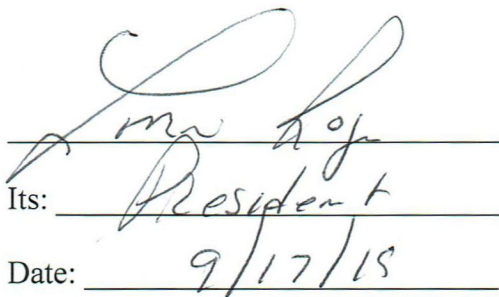 Its: President
Date: 9/17/15